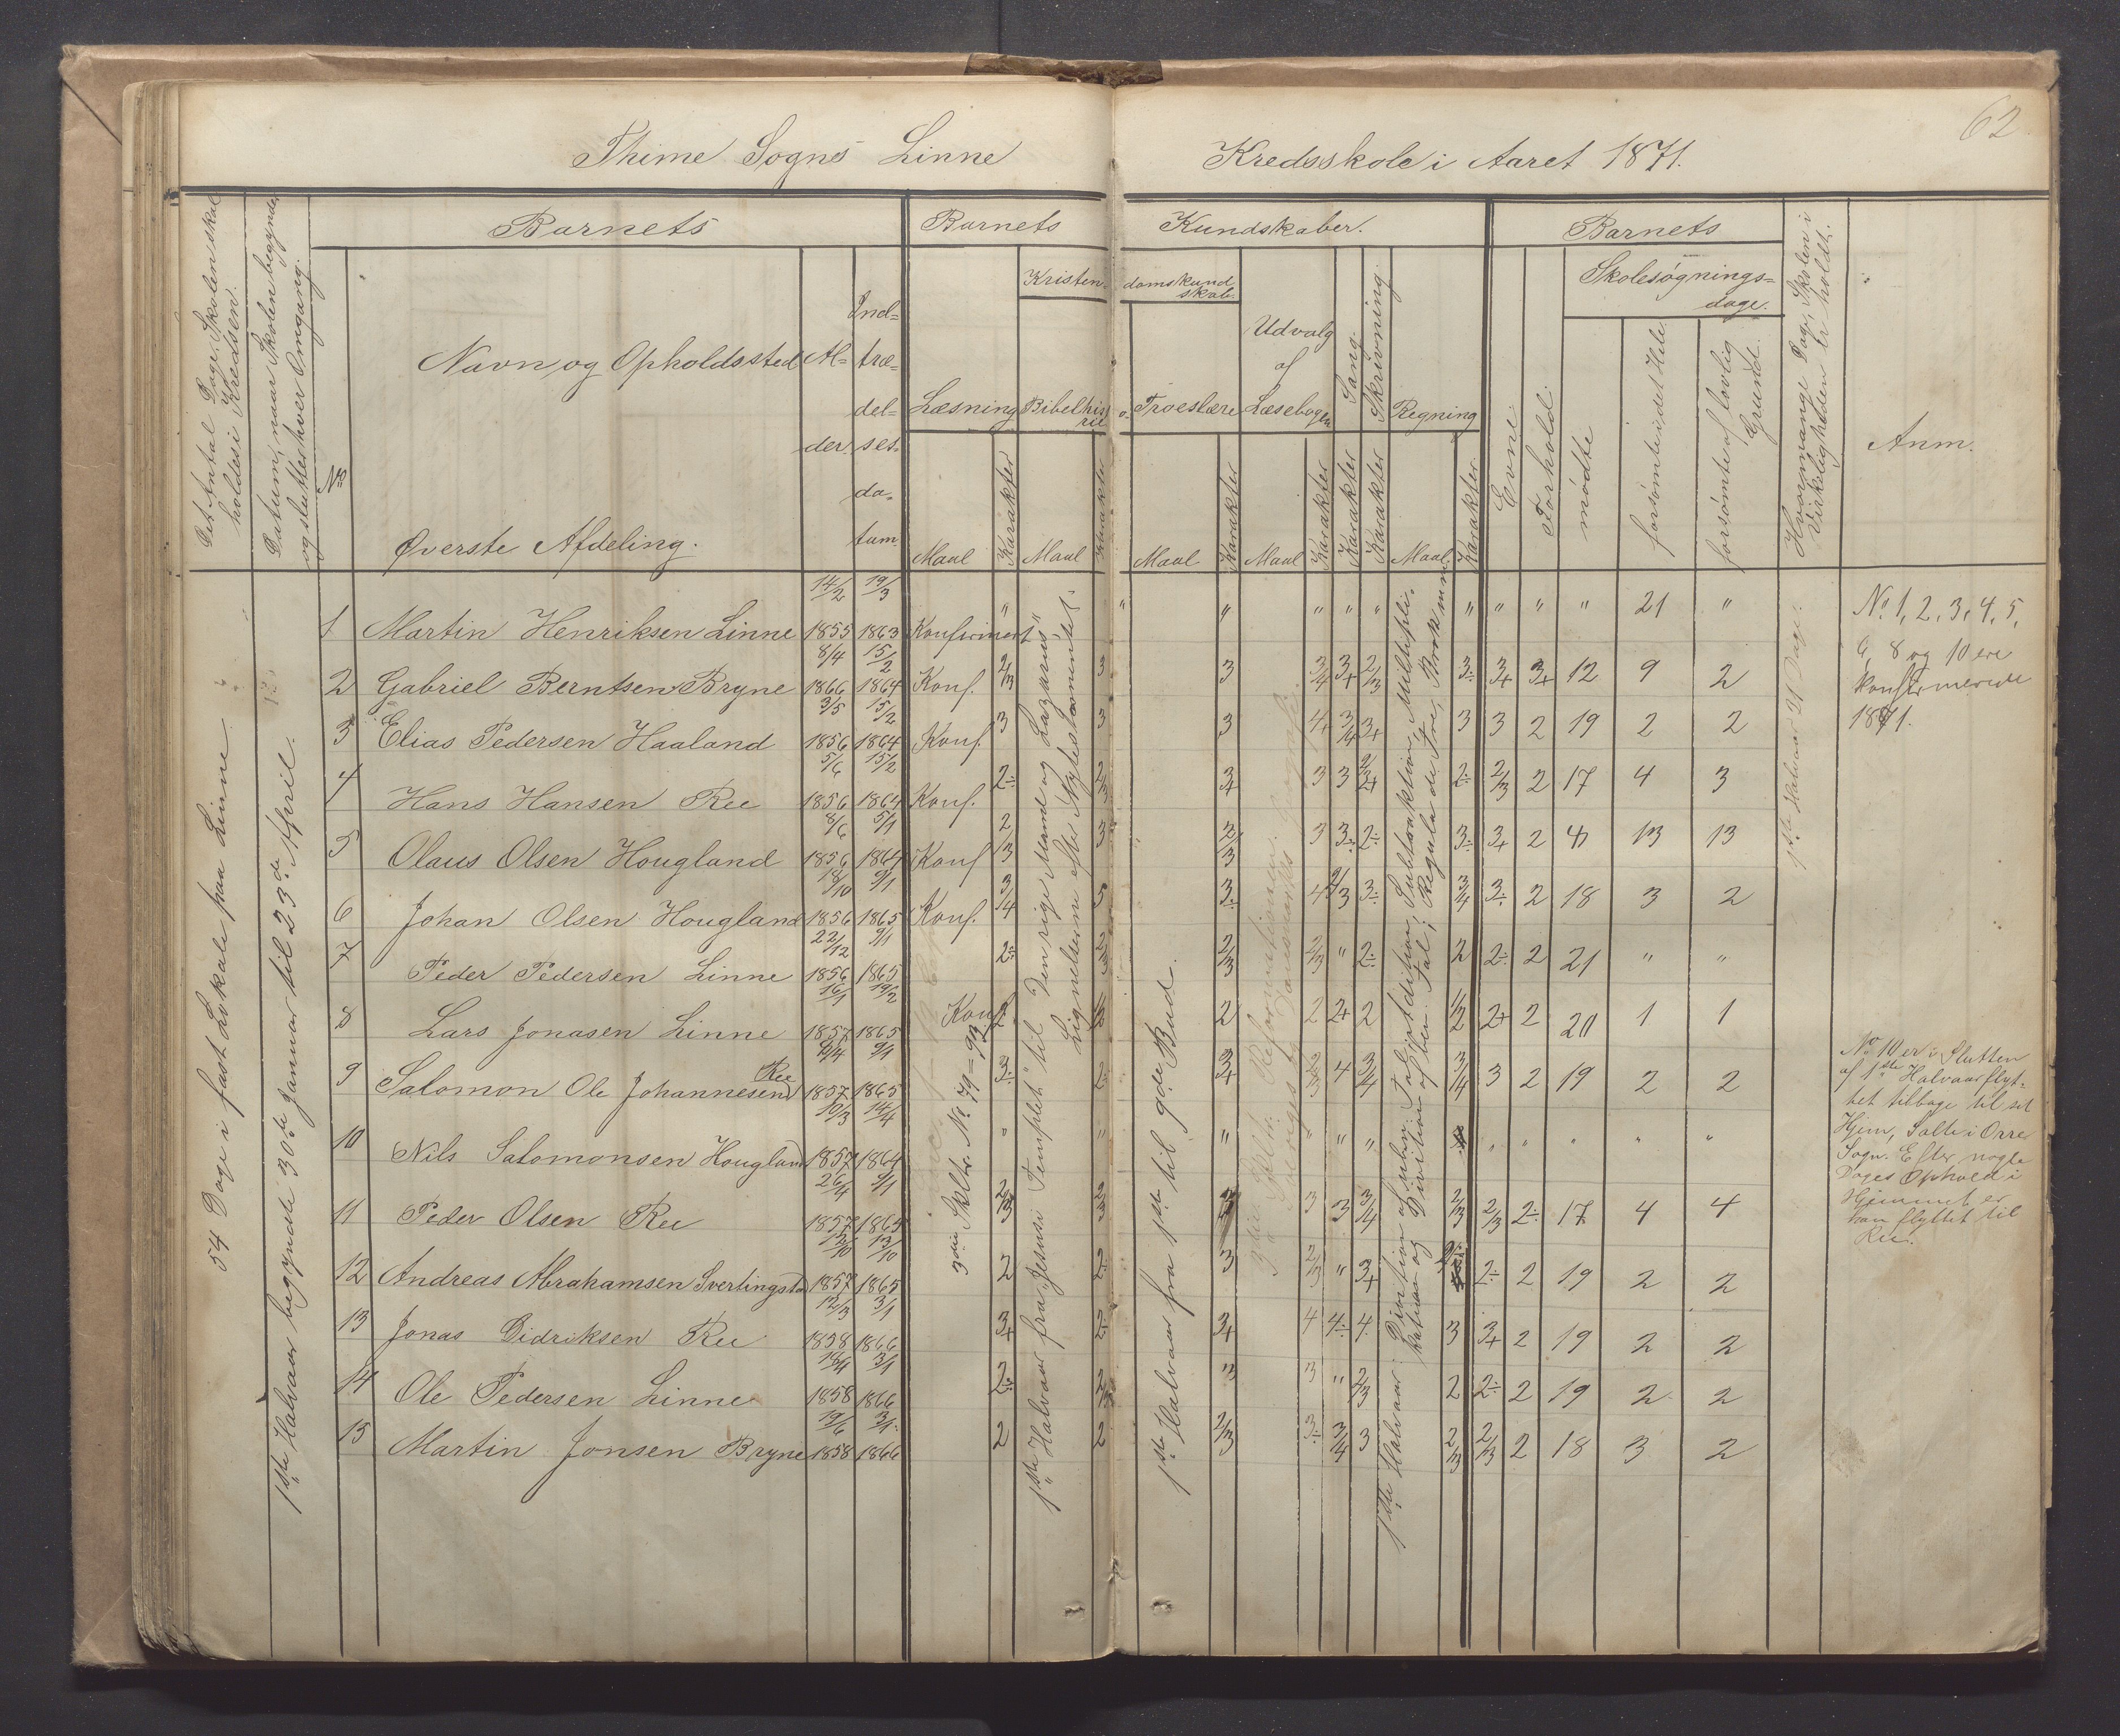 62
Thime Sogns Linne Kredsskole i Aaret 1871.
Det Antal Dage Skolen skal holdes i Kredsen.
Datum, naar Skolen begynder og slutter hver Omgang.
Barnets
Barnets Kundskaber.
Barnets
Hvormange Dage Skolen i Virkeligheden er holdt.
Anm.
No
Navn og Opholdssted
Øverste Afdeling.
Al-
der.
Ind-
træ-
del-
ses.
da-
tum.
Læsning
Kristen-
domskund
skab.
Bibelhisto-
rie
Troeslære
Udvalg
af
Læsebogen
Sang.
Skrivning.
Regning
Evne.
Forhold.
Skolesøgnings=
dage.
mødte
forsømte i det Hele.
forsømte af lovlig Grund.
Maal Karakter Maal Karakter Maal Karakter Maal Karakter Karakter Karakter Maal Karakter
54 Dage i fast Lokale paa Linne.
1ste Halvaar begyndte 30te Januar til 23de April.
1 Martin Henriksen Linne 14/2 1855 19/3 1863 Konfirmert " " " " " " " " " " 21 "
2 Gabriel Berntsen Bryne 8/4 1866 15/2 1864 Konf. 2/3 3 3 3/4 3+ 2/3 3÷ 3+ 3+ 12 9 2
3 Elias Pedersen Haaland 3/5 1856 15/2 1864 Konf. 3 3 3 4+ 3/4 3+ 3 3 2 19 2 2
4 Hans Hansen Ree 5/6 1856 15/2 1864 Konf. 2÷ 2/3 3+ 3 3 2÷ 2/3 2 17 4 3
5 Olaus Olsen Hougland 8/6 1856 5/1 1864 Konf 2/3 3 2/3 3 3÷ 2÷ 3÷ 3+ 2 13 13
6 Johan Olsen Hougland 18/10 1856 9/1 1865 Konf. 3/4 5 3÷ 4 3÷ 3/4 3÷ 2 18 3 2
7 Peder Pedersen Linne 22/12 1856 9/1 1865 2÷ 2/3 2/3 2/3 " 2÷ 2 2÷ 2 21 " "
8 Lars Jonasen Linne 16/1 1857 19/2 1865 Konf. 2 2 2+ 2 1/2 2+ 2 20 1 1
9 Salomon Ole Johannesen Ree 1857 9/1 1865 3÷ 2÷ 3+ 2/3 4 3/4 3/4 3 2 19 2 2
10 Nils Salomonsen Hougland 10/3 1857 14/4 1864 " " " " " " " " " " "
11 Peder Olsen Ree 26/4 1857 9/1 1865 2/3 2/3 3 3 3/4 2/3 2/3 2÷ 17 4 4
12 Andreas Abrahamsen Svertingstad 2/10 1857 13/10 1865 2 2÷ 3 2/3 " 3+ 2÷ 2÷ 2 19 2 2
13 Jonas Didriksen Ree 12/3 1858 3/1 1866 3+ 2÷ 3+ 4 4÷ 4 3 3+ 2 19 2 2
14 Ole Pedersen Linne 1858 3/1 1866 2÷ 2/3 3 3 " 2/3 2 2÷ 2 19 2 2
15 Martin Jonsen Bryne 19/6 1858 3/1 1866 2 2 2/3 3÷ 3/4 3 2/3 2/3 2 18 3 2
3die Skltr. No 79=92
1ste Halvaar fra „Jesus i Templet" til „Den rige Mand og Lazarus"
Lignelsern efter Nytestamentet.
1ste Halvaar fra 1ste til 9de Bud.
Reformationen.
1ste Halvaar: Addition, Subtraktion, Multipli-
kation og Division af ben. Tal; Regula de Tre, Brøk m.m.
1ste Halvaar 21 Dage.
No. 1, 2, 3, 4, 5,
6, 8 og 10 ere
konfirmerede
1871.
No 10 er i Slutten
af 1ste Halvaar flyt-
tet tilbage til sit
Hjem, Salte i Orre
Sogn. Efter nogle
Dages Ophold i
Hjemmet er
han flyttet til
Ree.